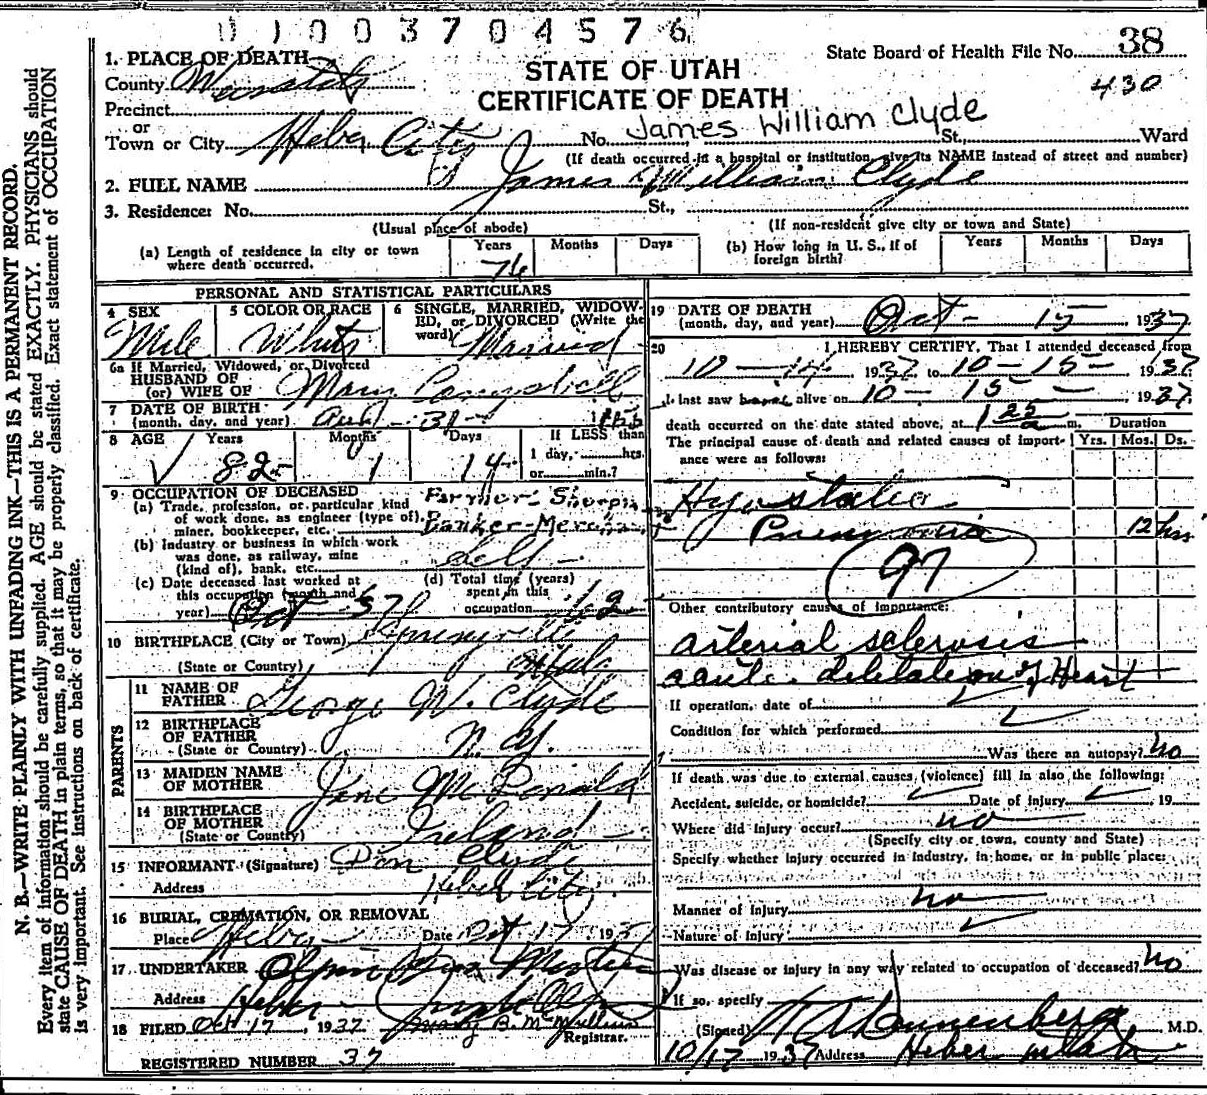 0 1 0 0 3 7 0 4 5 7 6
State Board of Health File No. 38
430
STATE OF UTAH
CERTIFICATE OF DEATH
1. PLACE OF DEATH
County Wasatch
Precinct
or
Town or City Heber City No. James William Clyde St. Ward
(If death occurred in a hospital or institution, give its NAME instead of street and number)
2. FULL NAME James William Clyde
3. Residence: No. St.,
(Usual place of abode) (If non-resident give city or town and State)
(a) Length of residence in city or town where death occurred. Years 76 Months Days
(b) How long in U. S., if of foreign birth? Years Months Days
PERSONAL AND STATISTICAL PARTICULARS
4 SEX Male
5 COLOR OR RACE White
6 SINGLE, MARRIED, WIDOWED, or DIVORCED (Write the word) Married
6a If Married, Widowed, or Divorced
HUSBAND OF
(or) WIFE OF Mary Campbell
7 DATE OF BIRTH
(month, day, and year) Aug - 31 - 1855
8 AGE Years 82 Months 1 Days 14
If LESS than
1 day, hrs.
or min.?
9 OCCUPATION OF DECEASED
(a) Trade, profession, or particular kind
of work done, as engineer (type of), miner, bookkeeper, etc. Farmer
Banker
(b) Industry or business in which work
was done, as railway, mine
(kind of), bank, etc. self
(c) Date deceased last worked at
this occupation (month and
year) Oct - 37
(d) Total time (years)
spent in this
occupation 62
10 BIRTHPLACE (City or Town) Springville
(State or Country) Utah
PARENTS
11 NAME OF
FATHER George W. Clyde
12 BIRTHPLACE
OF FATHER
(State or Country) N. Y.
13 MAIDEN NAME
OF MOTHER Jane McDonald
14 BIRTHPLACE
OF MOTHER
(State or Country) Ireland
15 INFORMANT (Signature) Don Clyde
Address Heber City
16 BURIAL, CREMATION, OR REMOVAL
Place Heber Date Oct 17 1937
17 UNDERTAKER
Address Heber
18 FILED Oct 17, 1937 Mary B. McMullin
Registrar.
REGISTERED NUMBER 37
19 DATE OF DEATH
(month, day, and year) Oct - 15 - 1937
20 I HEREBY CERTIFY, That I attended deceased from
10 - 14 1937 to 10 - 15 - 1937
I last saw alive on 10 - 15 - 1937
death occurred on the date stated above, at m.
The principal cause of death and related causes of importance were as follows:
Duration
Yrs. Mos. Ds.
Hypostatic
Pneumonia 12 hrs
97
Other contributory causes of importance:
arterial sclerosis
acute dilatation of Heart
If operation, date of ✓
Condition for which performed ✓
Was there an autopsy? no
If death was due to external causes (violence) fill in also the following:
Accident, suicide, or homicide? ✓ Date of injury ✓ 19
Where did injury occur? no
(Specify city or town, county and State)
Specify whether injury occurred in industry, in home, or in public place:
no
Manner of injury
Nature of injury ✓
Was disease or injury in any way related to occupation of deceased? no
If so, specify
(Signed) Dannenberg M.D.
10/17 1937 Address Heber Utah
N. B.—WRITE PLAINLY WITH UNFADING INK—THIS IS A PERMANENT RECORD.
Every item of information should be carefully supplied. AGE should be stated EXACTLY. PHYSICIANS should
state CAUSE OF DEATH in plain terms, so that it may be properly classified. Exact statement of OCCUPATION
is very important. See instructions on back of certificate.